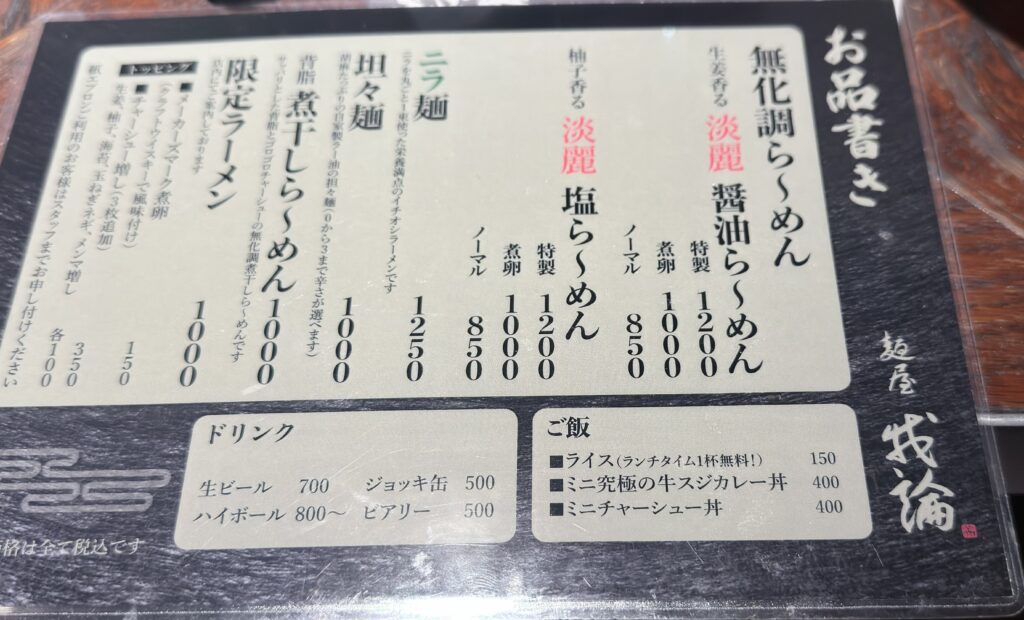 お品書き
麺屋 我論
無化調ら～めん
生姜香る 淡麗 醤油ら～めん
特製 1200
煮卵 1000
ノーマル 850
柚子香る 淡麗 塩ら～めん
特製 1200
煮卵 1000
ノーマル 850
ニラ麺 1250
ニラを丸ごと一束使った栄養満点のイチオシラーメンです
坦々麺 1000
胡麻たっぷりの自家製ラー油の担々麺(0から3まで辛さが選べます)
背脂 煮干しら～めん 1000
背脂とゴロゴロチャーシューの無化調煮干しら～めんです
限定ラーメン 1000
店内にてご案内しております
トッピング
■メーカーズマーク煮卵
(クラフトウイスキーで風味付け) 150
■チャーシュー増し(3枚追加) 350
生姜、柚子、海苔、玉ねぎネギ、メンマ増し 各100
紙エプロンご利用のお客様はスタッフまでお申し付けください
ご飯
■ライス(ランチタイム1杯無料!) 150
■ミニ究極の牛スジカレー丼 400
■ミニチャーシュー丼 400
ドリンク
生ビール 700 ジョッキ缶 500
ハイボール 800～ ビアリー 500
格は全て税込です